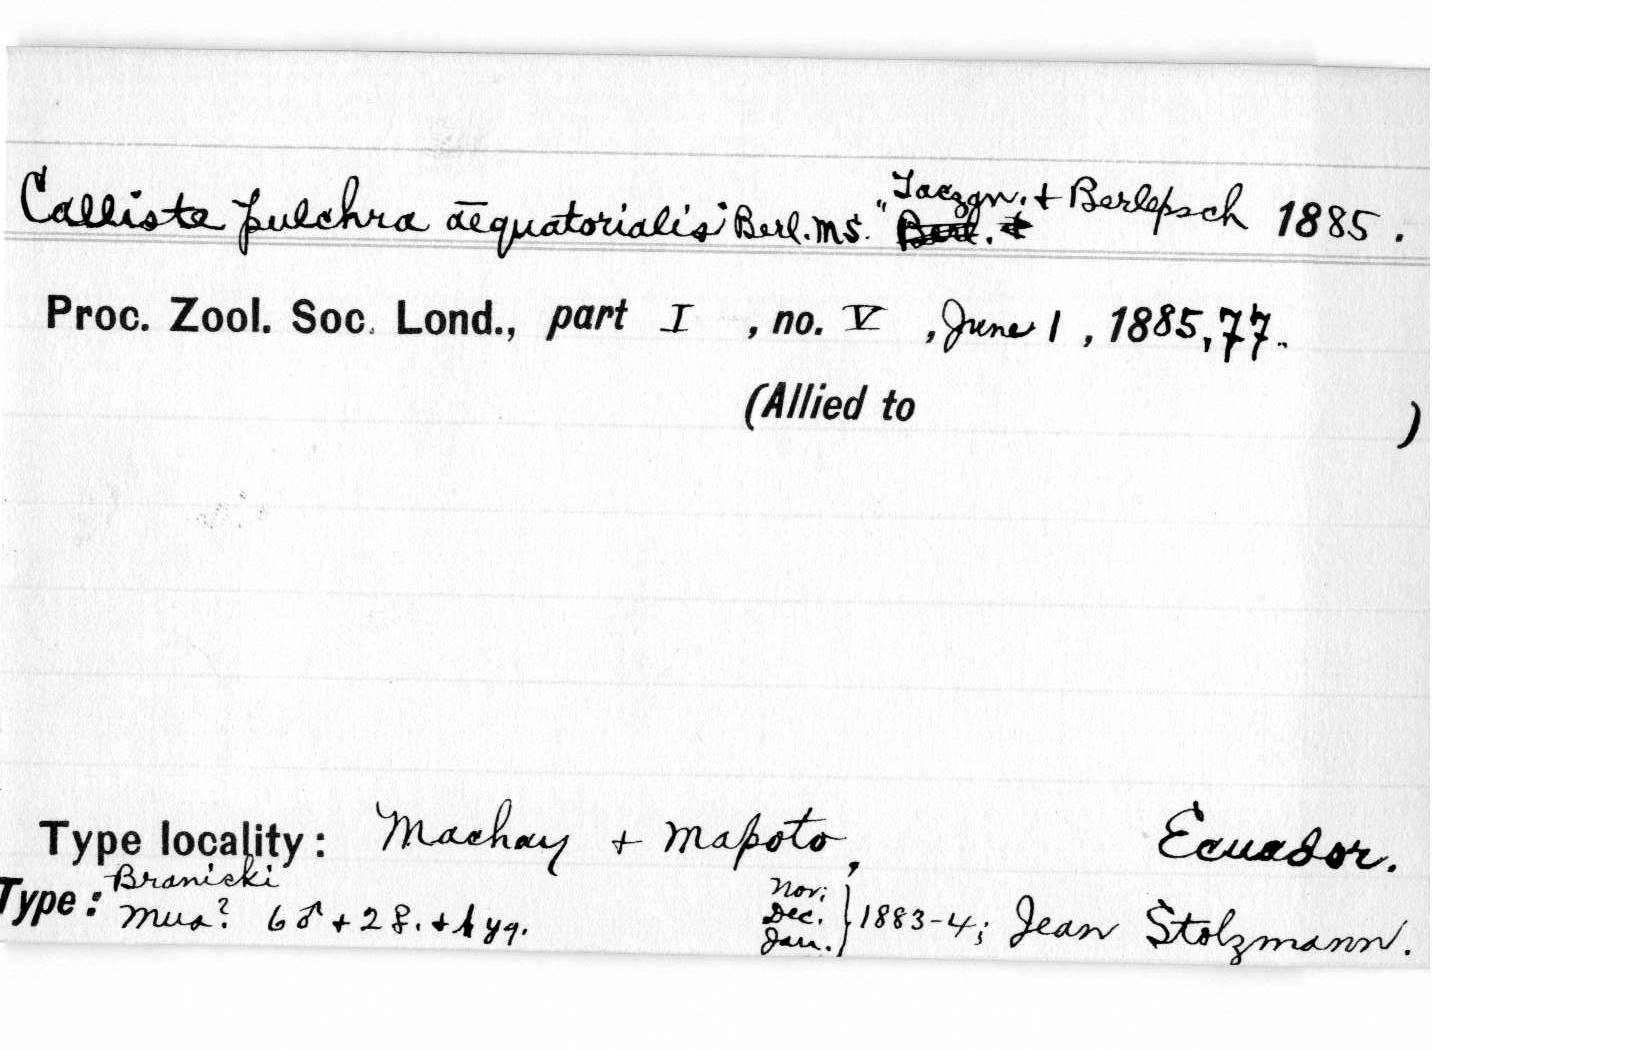 Calliste pulchra aequatorialis "Berl. MS." Taczan. + Berlepsch 1885.
Proc. Zool. Soc. Lond., part I , no. V , June 1 , 1885, 77.
(Allied to )
Type locality: Machay + Mapoto, Ecuador.
Type: Branicki Mus? 6♂ + 2♀. + 1 yg. Nov. Dec. Jan. } 1883-4; Jean Stolzmann.